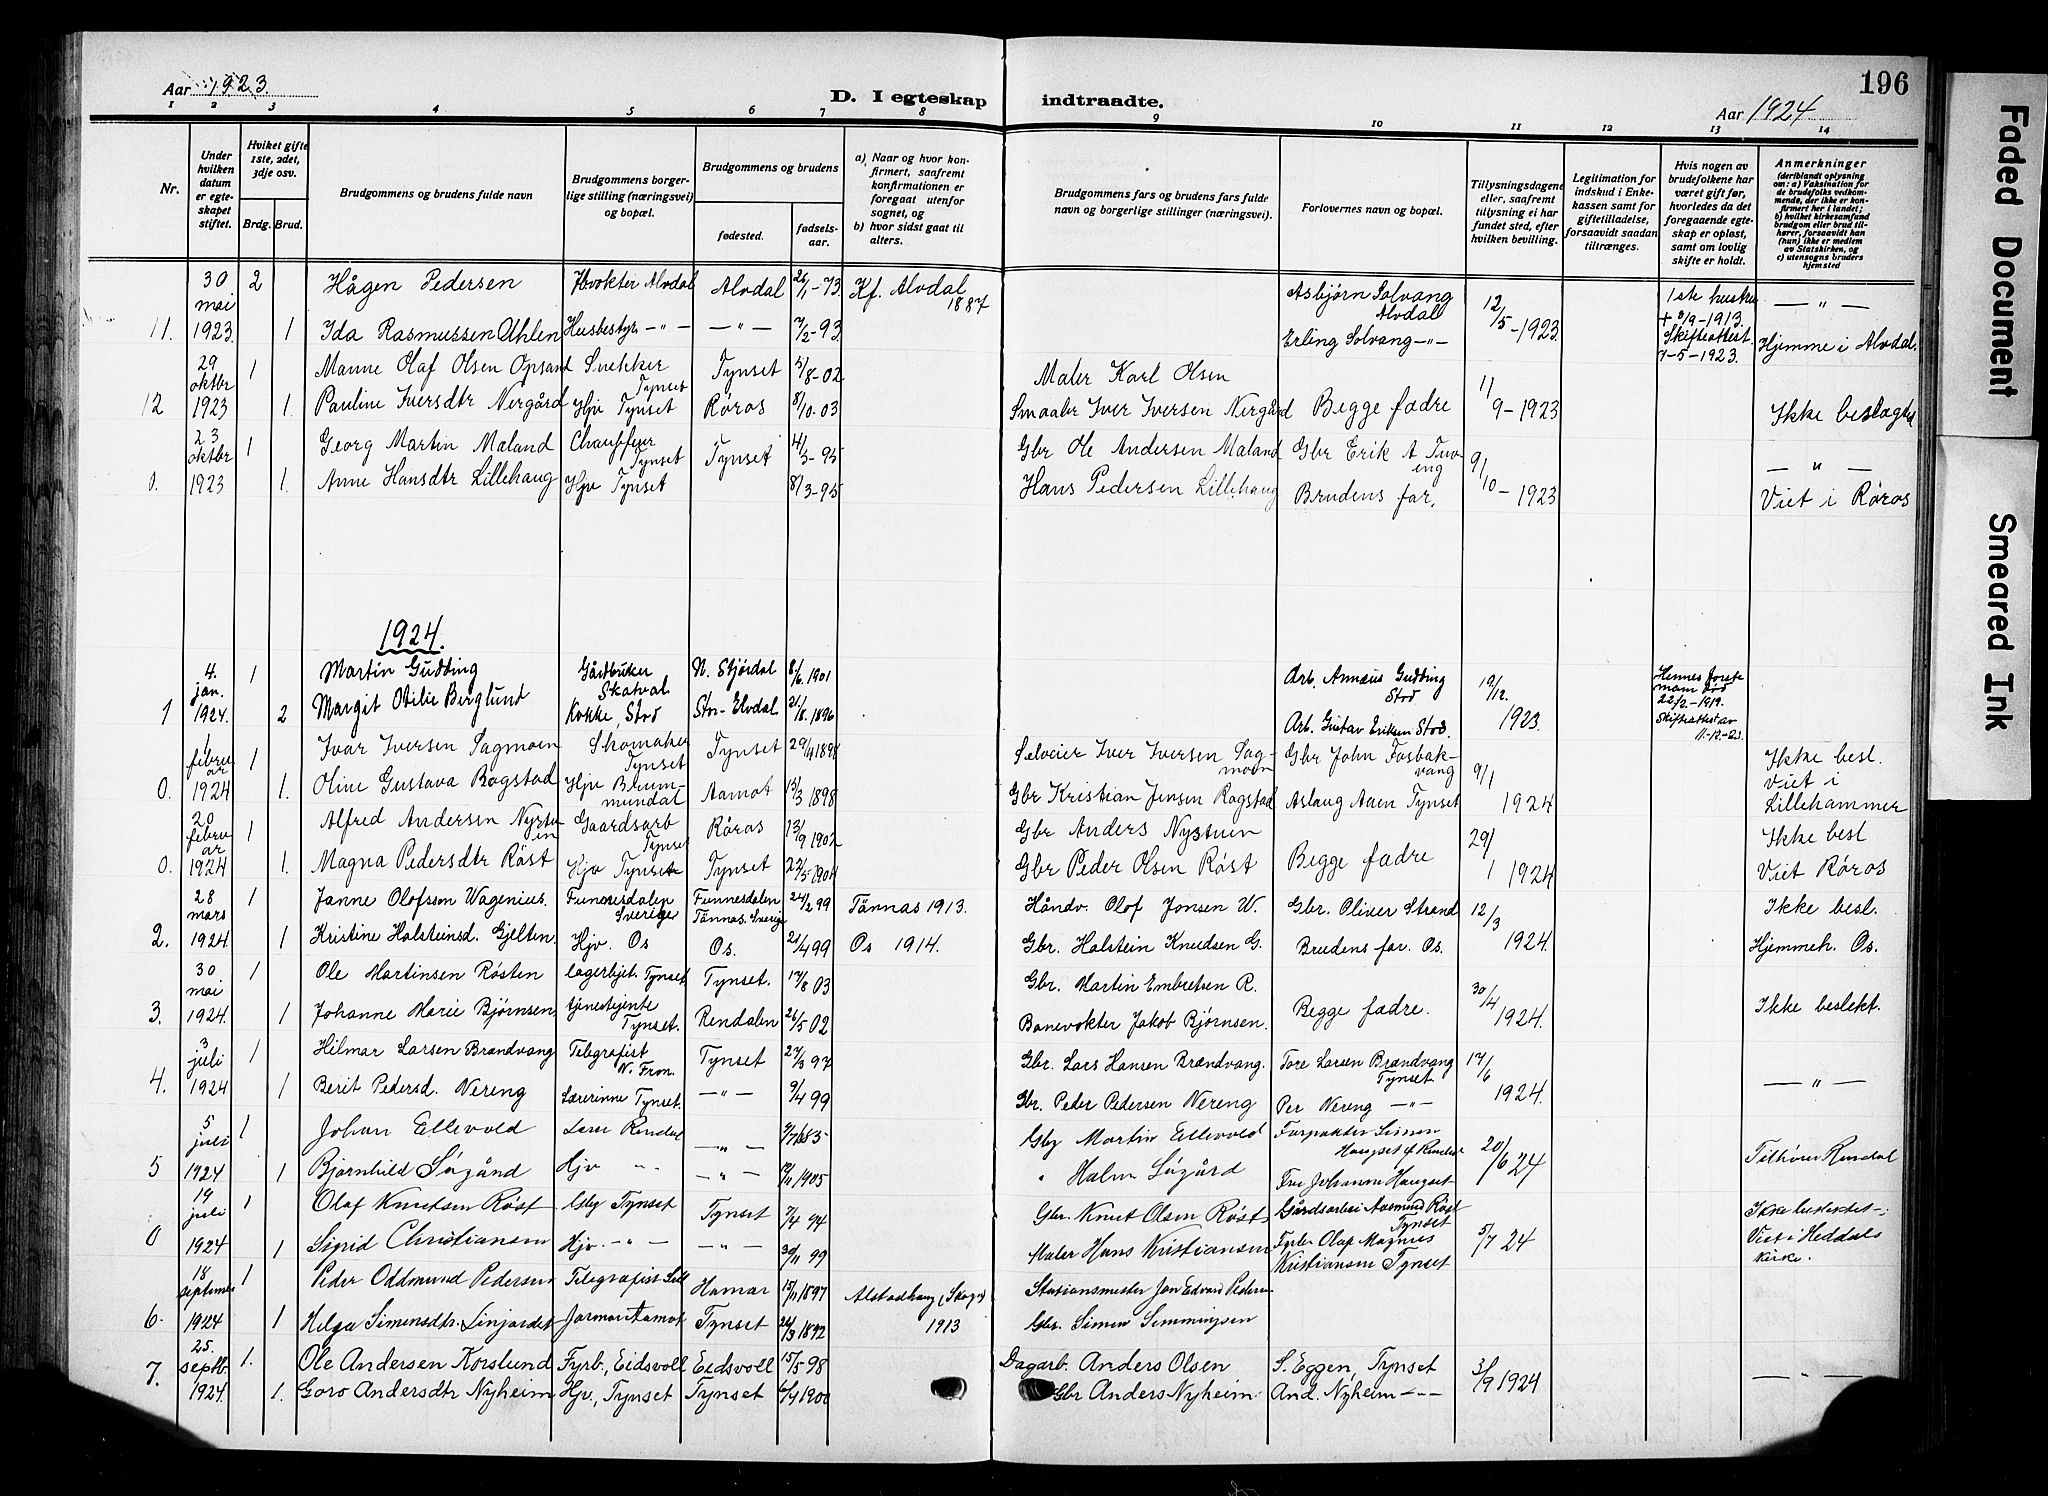 Aar 1923.
D. I egteskap indtraadte.
Aar 1924
196
Faded Document
Smeared Ink
1 2 3 4 5 6 7 8 9 10 11 12 13 14
Nr.
Under hvilken datum er egteskapet stiftet.
Hviket gifte 1ste, 2det, 3dje osv.
Brdg. Brud.
Brudgommens og brudens fulde navn
Brudgommens borgerlige stilling (næringsvei) og bopæl.
Brudgommens og brudens
fødested.
fødselsaar.
a) Naar og hvor konfirmert, saafremt konfirmationen er foregaat utenfor sognet, og
b) hvor sidst gaat til alters.
Brudgommens fars og brudens fars fulde navn og borgerlige stillinger (næringsvei).
Forlovernes navn og bopæl.
Tillysningsdagene eller, saafremt tillysning ei har fundet sted, efter hvilken bevilling.
Legitimation for indskud i Enkekassen samt for giftetilladelse, forsaavidt saadan tiltrænges.
Hvis nogen av brudefolkene har været gift før, hvorledes da det foregaaende egteskap er opløst, samt om lovlig skifte er holdt.
Anmerkninger (deriblandt oplysning om: a) Vaksination for de brudefolks vedkommende, der ikke er konfirmert her i landet; b) hvilket kirkesamfund brudgom eller brud tilhører, forsaavidt han (hun) ikke er medlem av Statskirken, og c) utensogns bruders hjemsted
30 mai 2 Hågen Pedersen Alvdal Alvdal 26/1-73 Kf. Alvdal 1887 Asbjørn Solvang Alvdal 12/5-1923 1ste hustru — " —
11. 1923 1 Ida Rasmussen Ahlen Husbestyr — " — — " — 7/2-93 Erling Solvang — " — + 8/9-1913. Skifteattest 7-5-1923. Hjemme i Alvdal.
29 oktbr 1 Manne Olaf Olsen Opsand Snekker Tynset Tynset 5/8-02 Maler Karl Olsen 11/9-1923
12 1923 1. Pauline Iversdtr Nergård Hjv Tynset Røros 8/10-03 Smaabr Iver Iversen Nergård Begge fædre Ikke beslægtet
23 oktbr 1 Georg Martin Maland Chauffeur Tynset Tynset 4/3-95 Gbr Ole Andersen Maland Gbr Erik A Tuveng 9/10-1923 — " —
0. 1923 1. Anne Hansdtr Lillehaug Hjv Tynset 8/3-95 Hans Pedersen Lillehaug Brudens far. Viet i Røros
1924.
4. jan. 1 Martin Gudding Gårdbruker Skatval N. Stjørdal 8/6.1901 Arb. Annæus Gudding Stod 19/12. 1923 Hennes første mann død 22/2.-1919.
1 1924. 2 Margit Otilie Berglund Kokke, Stod Stor-Elvdal 21/8.1896 Arb. Gustav Eriksen Stod. Skifteattest av 11-12-23.
1 februar 1 Ivar Iversen Sagmoen Skomaker Tynset Tynset 29/4 1898 Selveier Iver Iversen Sagmoen Gbr John Fosbakvang 9/1 1924 Ikke besl.
0. 1924 1. Oline Gustava Rogstad Hjv Brummundal Aamot 13/3 1898 Gbr Kristian Jensen Rogstad Aslaug Aaen Tynset Viet i Lillehammer
20 februar 1 Alfred Andersen Nystuen Gaardsarb Tynset Røros 13/9 1902 Gbr Anders Nystuen Begge fædre 29/1 1924 Ikke besl
0. 1924 1. Magna Pedersdtr Røst Hjv Tynset Tynset 22/5 1904 Gbr Peder Olsen Røst Viet Røros
28 mars 1 Janne Olofsson Wagenius. Funnesdalen Sverige Funnesdalen Tännas. Sverige 24/2 99 Tännas 1913. Håndv. Olof Jonsen W. Gbr. Oliver Strand 12/3 1924. Ikke besl.
2. 1924 1 Kristine Holsteinsd. Gjelten. Hjv. Os Os. 21/4 99 Os 1914. Gbr. Holstein Knudsen G. Brudens far. Os. Hjemmeh. Os.
30 mai 1 Ole Martinsen Røsten lagerbjet. Tynset Tynset. 17/8 03 Gbr. Martin Embretsen R. Begge fædre. 30/4 1924. Ikke beslekt.
3. 1924. 1 Johanne Marie Bjørnsen tjenestejente Tynset. Rendalen 26/5 02 Banevokter Jakob Bjørnsen.
3 juli 1 Hilmar Larsen Brændvang Telegrafist N. Fron. Tynset 27/3 97 Gbr. Lars Hansen Brændvang. Tore Larsen Brændvang Tynset. 17/6 1924. — " —
4. 1924 1 Berit Pedersd. Nereng Lærerinne Tynset. — " — 9/4 99 Gbr. Peder Pedersen Nereng Per Nereng — " —
5 juli 1 Johan Ellevold Lærer Rendal — " — Gbr Martin Ellevold Simen Haugset 20/6 24
5 1924 1 Bjørnhild Søgård Hjv " — " — 1905 " Halvor Søgård Fru Johanne Haugset Tilhører Rendal
19 juli 1 Olaf Knutsen Røst Gbr Tynset Tynset 7/4 94 Gbr. Knut Olsen Røst Gårdsarbei Aasmund Røst Tynset 5/7 24 Ikke beslektet.
0 1924 1 Sigrid Christiansen Hjv. — " — — " — 30/11 99 Maler Hans Kristiansen Fyrb. Olaf Magnus Kristiansen Tynset Viet i Heddals kirke.
18 september 1 Peder Oddmund Pedersen Telegrafist Hamar 15/11 1897 Alstadhaug (Skogn) Stasionsmester Jon Edvard Pedersen
6. 1924 1 Helga Simensdtr. Linjordet Aamot Tynset 24/3 1892 1913 Gbr. Simen Simmingsen
25. septb. 1. Ole Andersen Korslund Fyrb., Eidsvoll Eidsvoll 15/5 98 Dagarb. Anders Olsen S. Eggen, Tynset 3/9 1924 — " —
7. 1924. 1. Goro Andersdtr Nyheim Hjv., Tynset Tynset 6/4 1900 Gbr Anders Nyheim And. Nyheim — " —